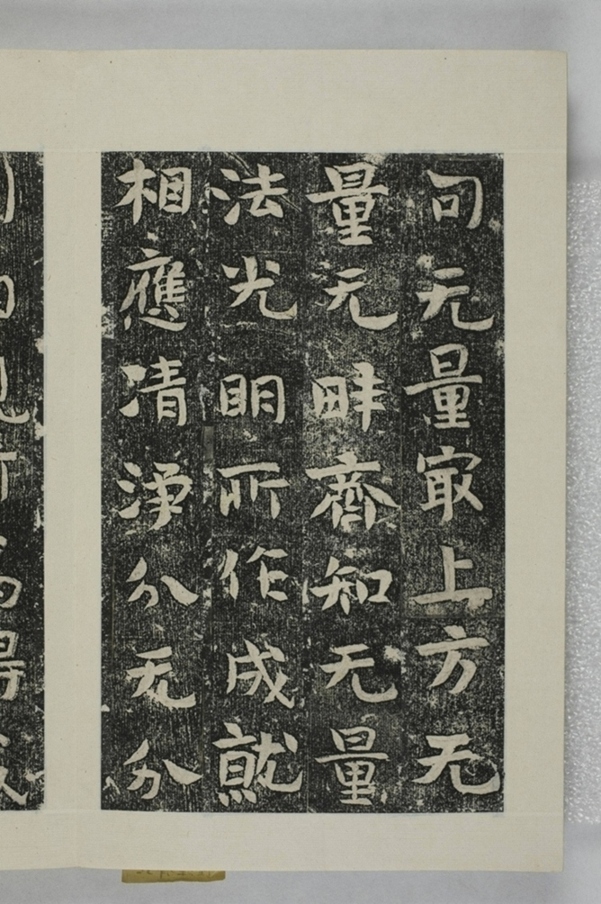 句无量冣上方无
量无畔齊知无量
法光明所作成就
相應清淨分无分